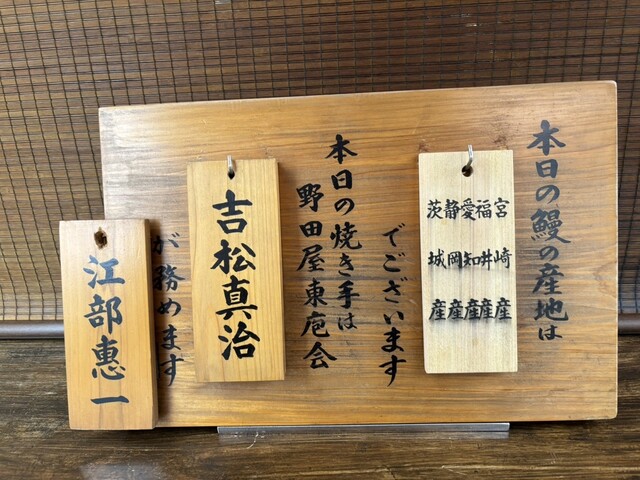 本日の鰻の産地は
宮崎産
福井産
愛知産
静岡産
茨城産
でございます
本日の焼き手は
野田屋東庖会
吉松真治
が務めます
江部恵一